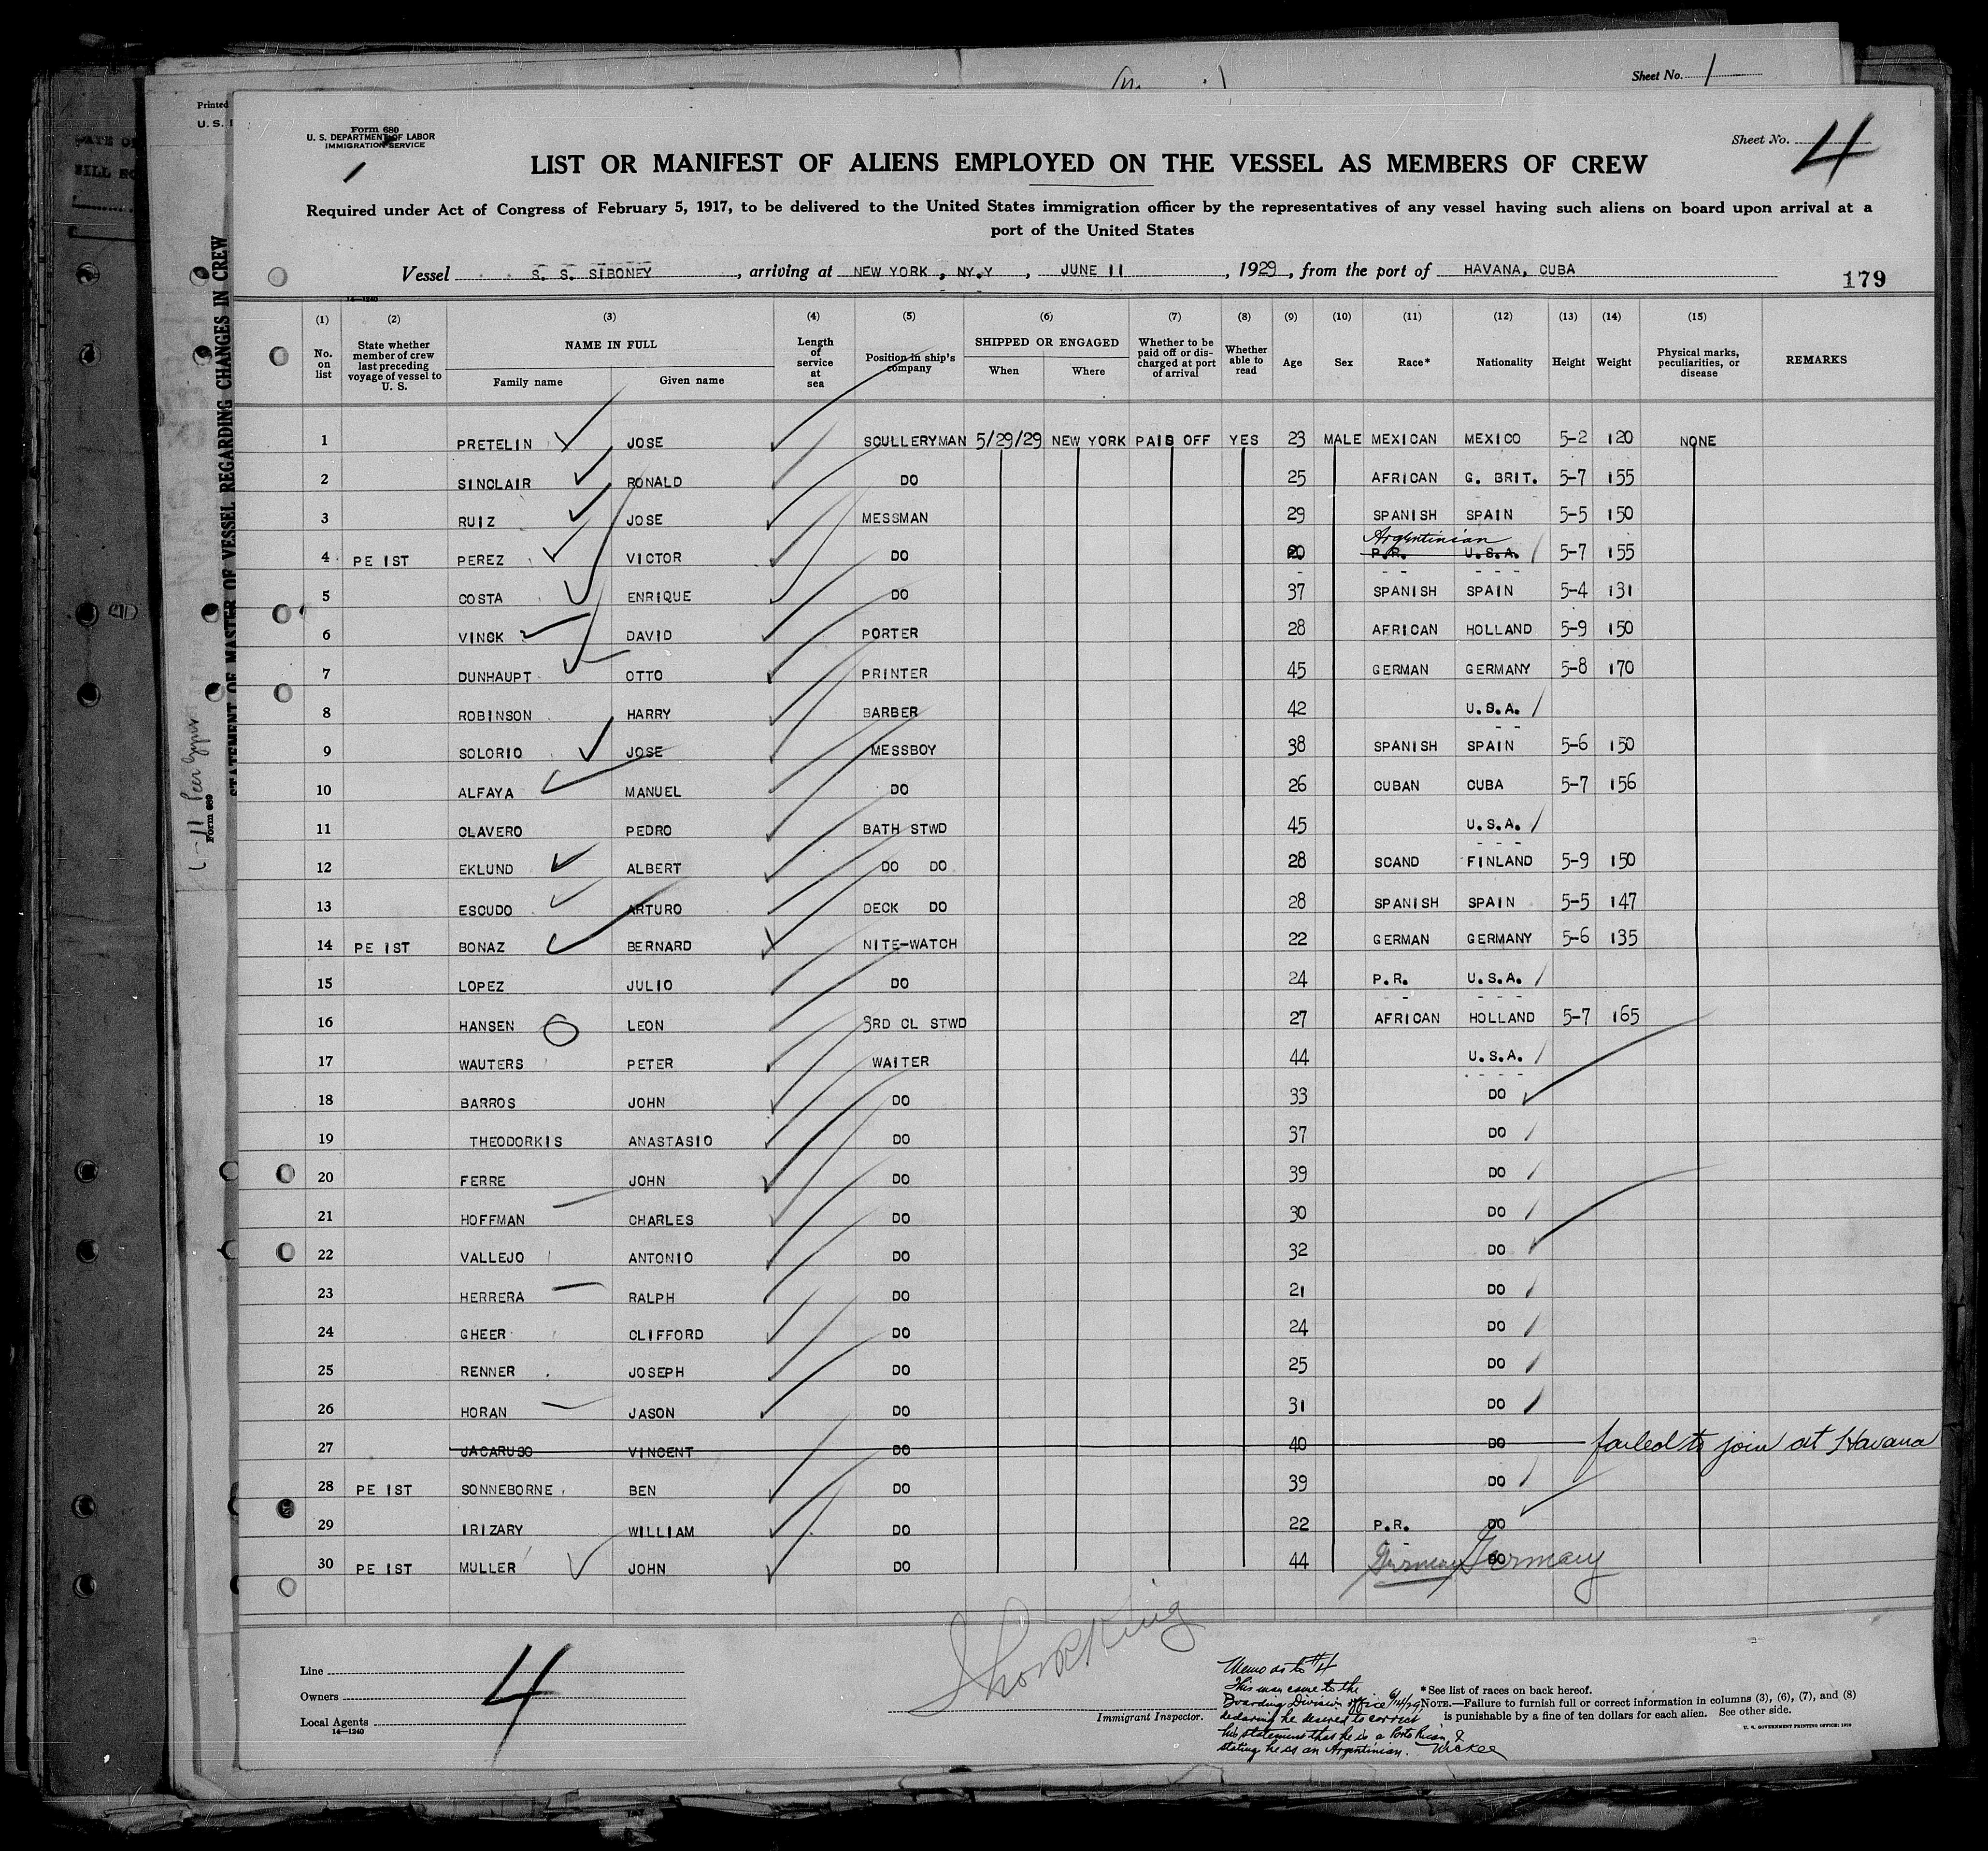 Sheet No. 1
Printed
U. S. I
Form 680
U. S. DEPARTMENT OF LABOR
IMMIGRATION SERVICE
Sheet No. 4
LIST OR MANIFEST OF ALIENS EMPLOYED ON THE VESSEL AS MEMBERS OF CREW
Required under Act of Congress of February 5, 1917, to be delivered to the United States immigration officer by the representatives of any vessel having such aliens on board upon arrival at a
port of the United States
Vessel S. S. SIBONEY, arriving at NEW YORK, NY.Y, JUNE 11, 1929, from the port of HAVANA, CUBA
179
STATEMENT OF MASTER OF VESSEL REGARDING CHANGES IN CREW
Form 689
14—1240
(1) No. on list (2) State whether member of crew last preceding voyage of vessel to U. S. (3) NAME IN FULL Family name Given name (4) Length of service at sea (5) Position in ship's company (6) SHIPPED OR ENGAGED When Where (7) Whether to be paid off or discharged at port of arrival (8) Whether able to read (9) Age (10) Sex (11) Race* (12) Nationality (13) Height (14) Weight (15) Physical marks, peculiarities, or disease REMARKS
1 PRETELIN JOSE SCULLERYMAN 5/29/29 NEW YORK PAID OFF YES 23 MALE MEXICAN MEXICO 5-2 120 NONE
2 SINCLAIR RONALD DO 25 AFRICAN G. BRIT. 5-7 155
3 RUIZ JOSE MESSMAN 29 SPANISH SPAIN 5-5 150
Argentinian
4 PE IST PEREZ VICTOR DO 20 P.R. U.S.A. 5-7 155
5 COSTA ENRIQUE DO 37 SPANISH SPAIN 5-4 131
6 VINCK DAVID PORTER 28 AFRICAN HOLLAND 5-9 150
7 DUNHAUPT OTTO PRINTER 45 GERMAN GERMANY 5-8 170
8 ROBINSON HARRY BARBER 42 U.S.A.
9 SOLORIO JOSE MESSBOY 38 SPANISH SPAIN 5-6 150
10 ALFAYA MANUEL DO 26 CUBAN CUBA 5-7 156
11 CLAVERO PEDRO BATH STWD 45 U.S.A.
12 EKLUND ALBERT DO DO 28 SCAND FINLAND 5-9 150
13 ESCUDO ARTURO DECK DO 28 SPANISH SPAIN 5-5 147
14 PE IST BONAZ BERNARD NITE-WATCH 22 GERMAN GERMANY 5-6 135
15 LOPEZ JULIO DO 24 P.R. U.S.A.
16 HANSEN LEON 3RD CL STWD 27 AFRICAN HOLLAND 5-7 165
17 WAUTERS PETER WAITER 44 U.S.A.
18 BARROS JOHN DO 33 DO
19 THEODORKIS ANASTASIO DO 37 DO
20 FERRE JOHN DO 39 DO
21 HOFFMAN CHARLES DO 30 DO
22 VALLEJO ANTONIO DO 32 DO
23 HERRERA RALPH DO 21 DO
24 GHEER CLIFFORD DO 24 DO
25 RENNER JOSEPH DO 25 DO
26 HORAN JASON DO 31 DO
27 JACARUSO VINCENT DO 40 DO failed to join at Havana
28 PE IST SONNEBORNE BEN DO 39 DO
29 IRIZARY WILLIAM DO 22 P.R. DO
30 PE IST MULLER JOHN DO 44 German DO Germany
Line
Owners
Local Agents
14—1240
4
Immigrant Inspector.
Memo as to #4
This man came to the
Boarding Division office 6/14/29,
declaring he desired to correct
his statement that he is a Porto Rican, &
stating he is an Argentinian.
*See list of races on back hereof.
NOTE.—Failure to furnish full or correct information in columns (3), (6), (7), and (8)
is punishable by a fine of ten dollars for each alien. See other side.
U. S. GOVERNMENT PRINTING OFFICE: 1928